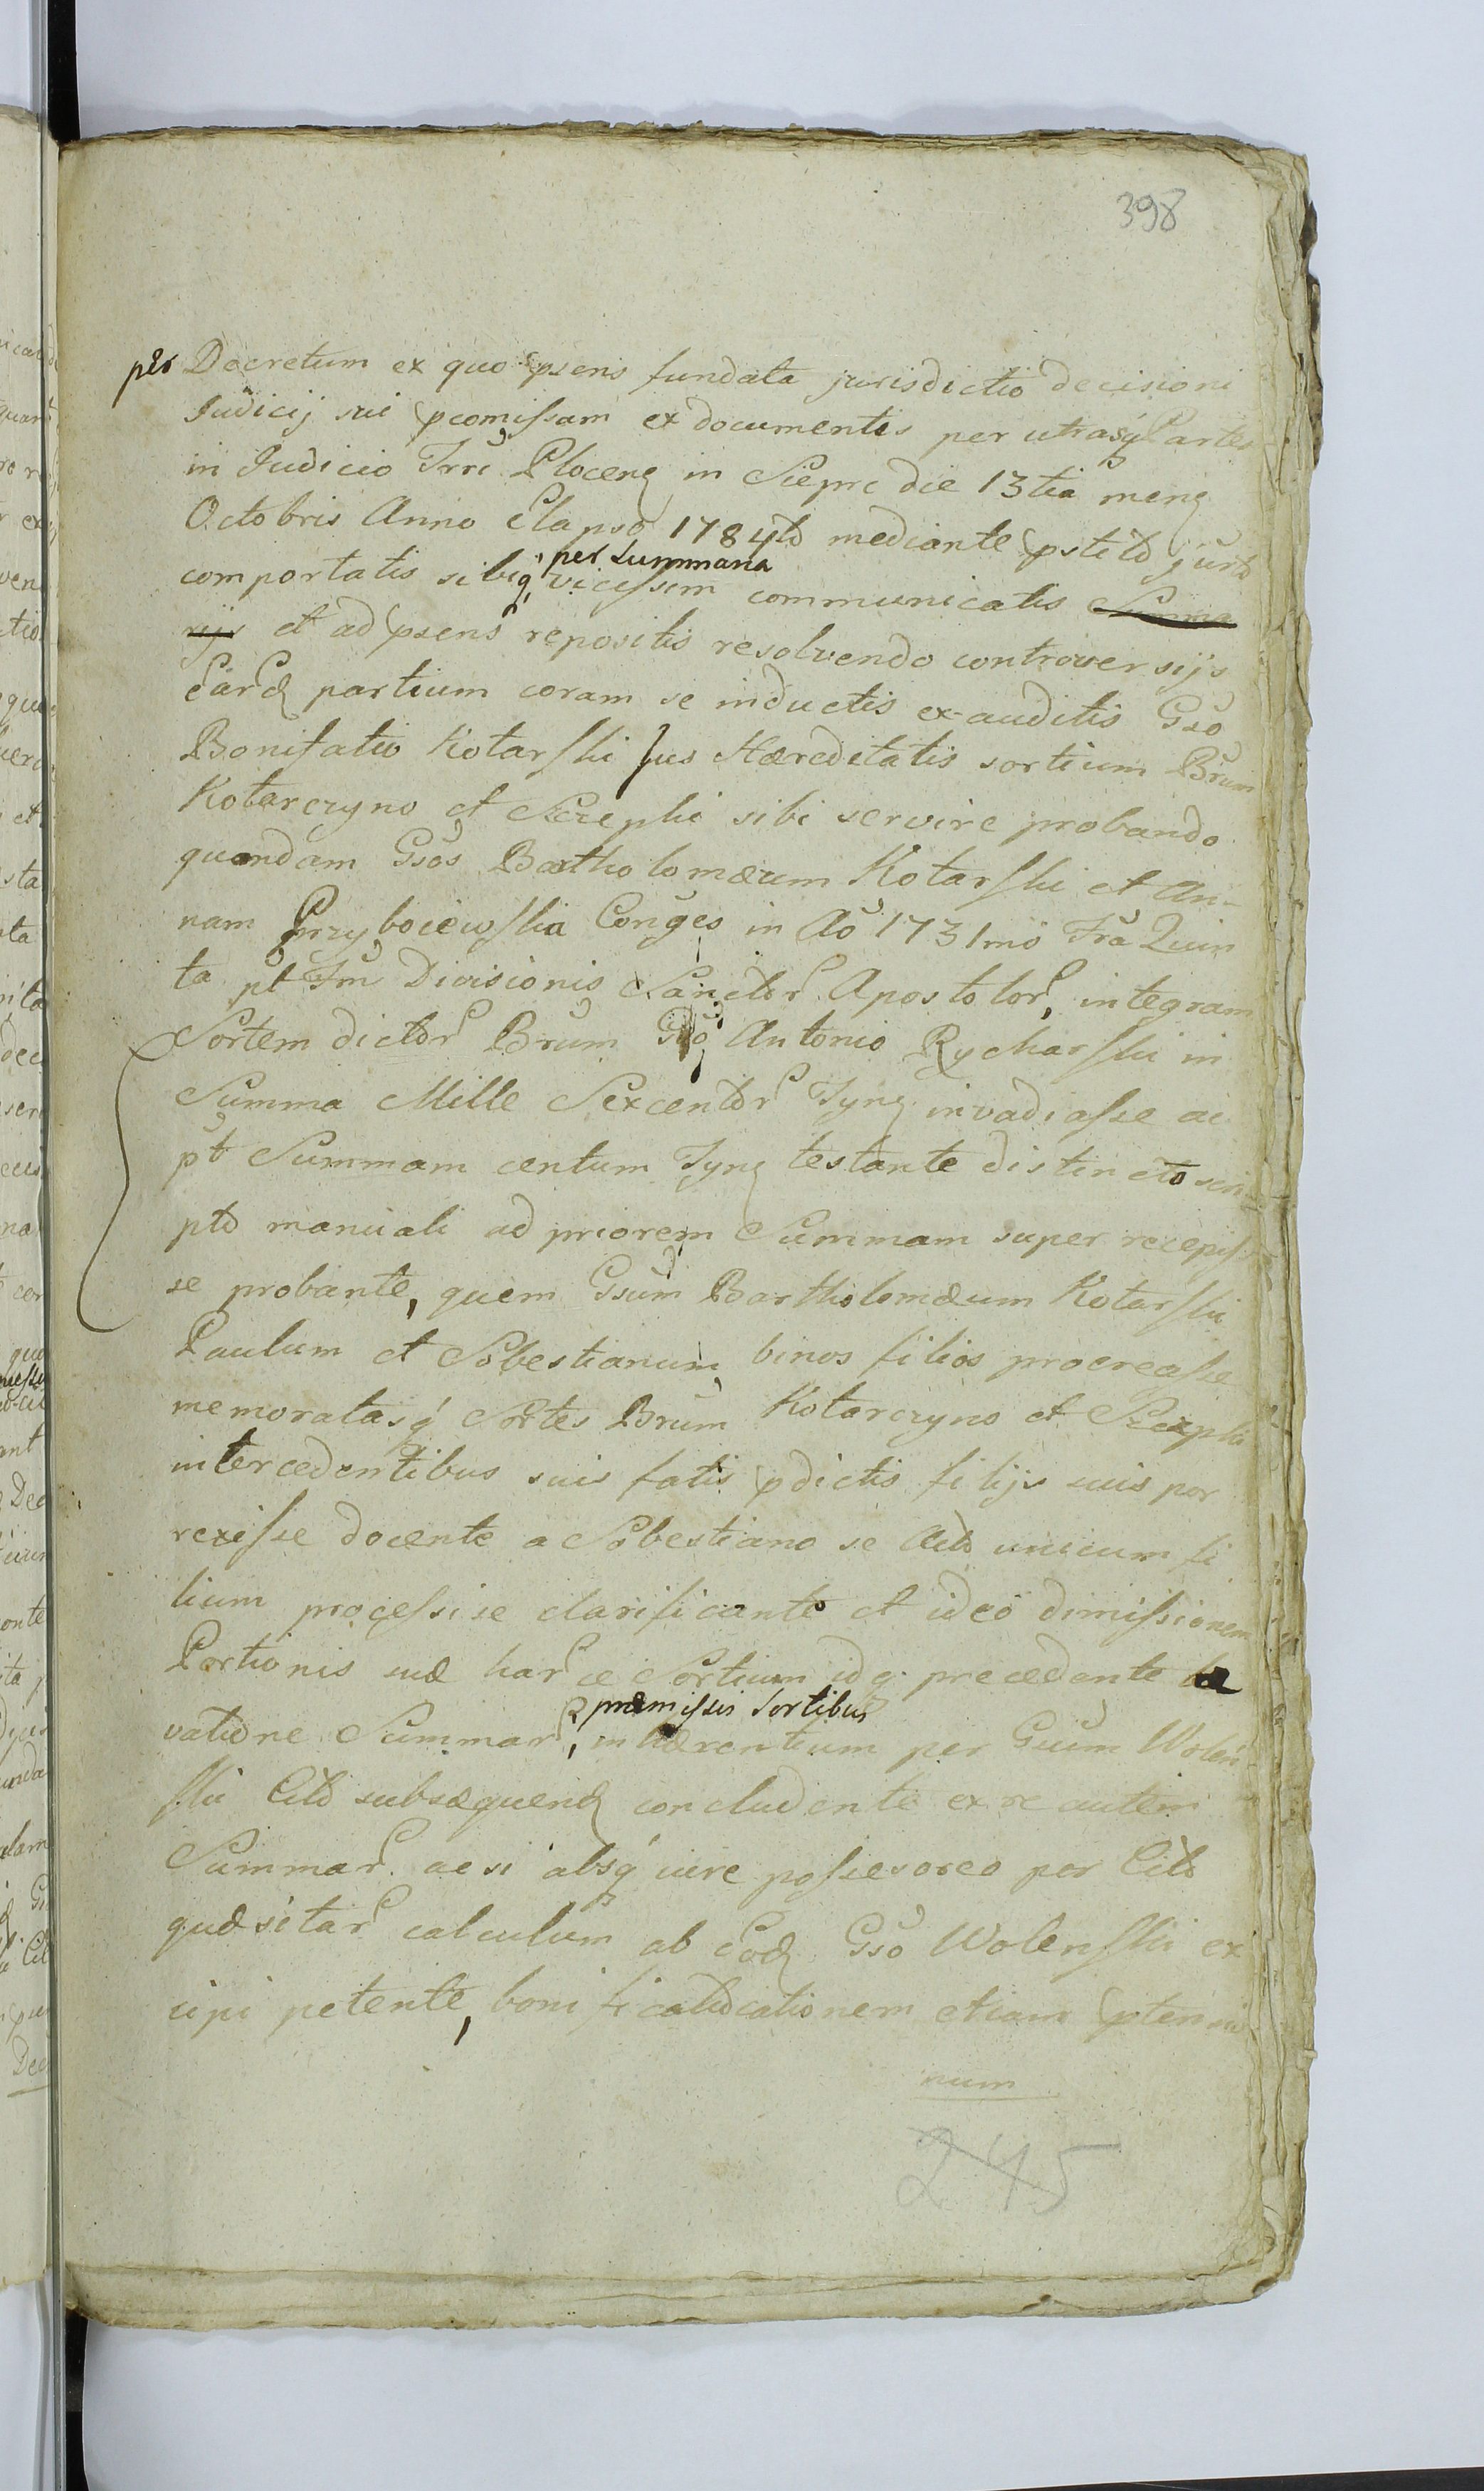 398
per Decretum ex quo psens fundata jurisdictio decisioni
Judicij sui pcomissam ex documentis per utrasq Partes
in Judicio Trri Plocens in Sieprc die 13tia mens
Octobris Anno Elapso 1784to mediante pstito jurto
per Summaria
comportatis sibiq vicissim communicatis Summa
rijs et ad psens repositis resolvendo controversijs
Eard partium coram se inductis ex-auditis Gso
Bonifatio Kotarski Jus Hæreditatis sortium Brum
Kotarczyno et Szczepki sibi servire probando
quondam Gsos Bartholomæum Kotarski et An-
nam Przyboiewska Conges in Ao 1731mo Fra Quin
ta pt Fm Divisionis Sanctor Apostolor, integram
Sortem dictor Brum Gso Antonio Rycharski in
Summa Mille Sexcentor Tyns invadiasse ac
pt Summam centum Tyns testante distincto scri-
pto manuali ad priorem Summam super recepis
se probante, quem Gsum Bartholomæum Kotarski
Paulum et Sobestianum binos filios procreasse
memoratasq Sortes Brum Kotarczyno et Szczepki
intercedentibus suis fatis pdictis filijs suis por
rexisse docente a Sobestiano se Acto unicum fi
lium processisse clarificante et ideo dimissionem
Portionis suæ harce Sortium idq precedente le
præmissis Sortibus
vatione Summar, inhærentium per Gsum Wolen
ski Cito subsæquend concludente ex re autem
Summar ac si absq iure possesoreo per Cito
quæsitar calculum ab Eod Gso Wolenski ex
cipi petente, bonificationem etiam
num
245